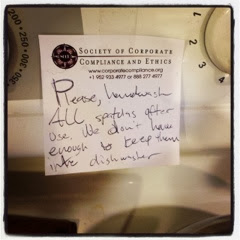 SOCIETY OF CORPORATE
COMPLIANCE AND ETHICS
www.corporatecompliance.org
+1 952 933 4977 or 888 277 4977
Please, handwash
All spatulas after
use. We don't have
enough to keep them
in the dishwasher
200
250
300
1
2
3